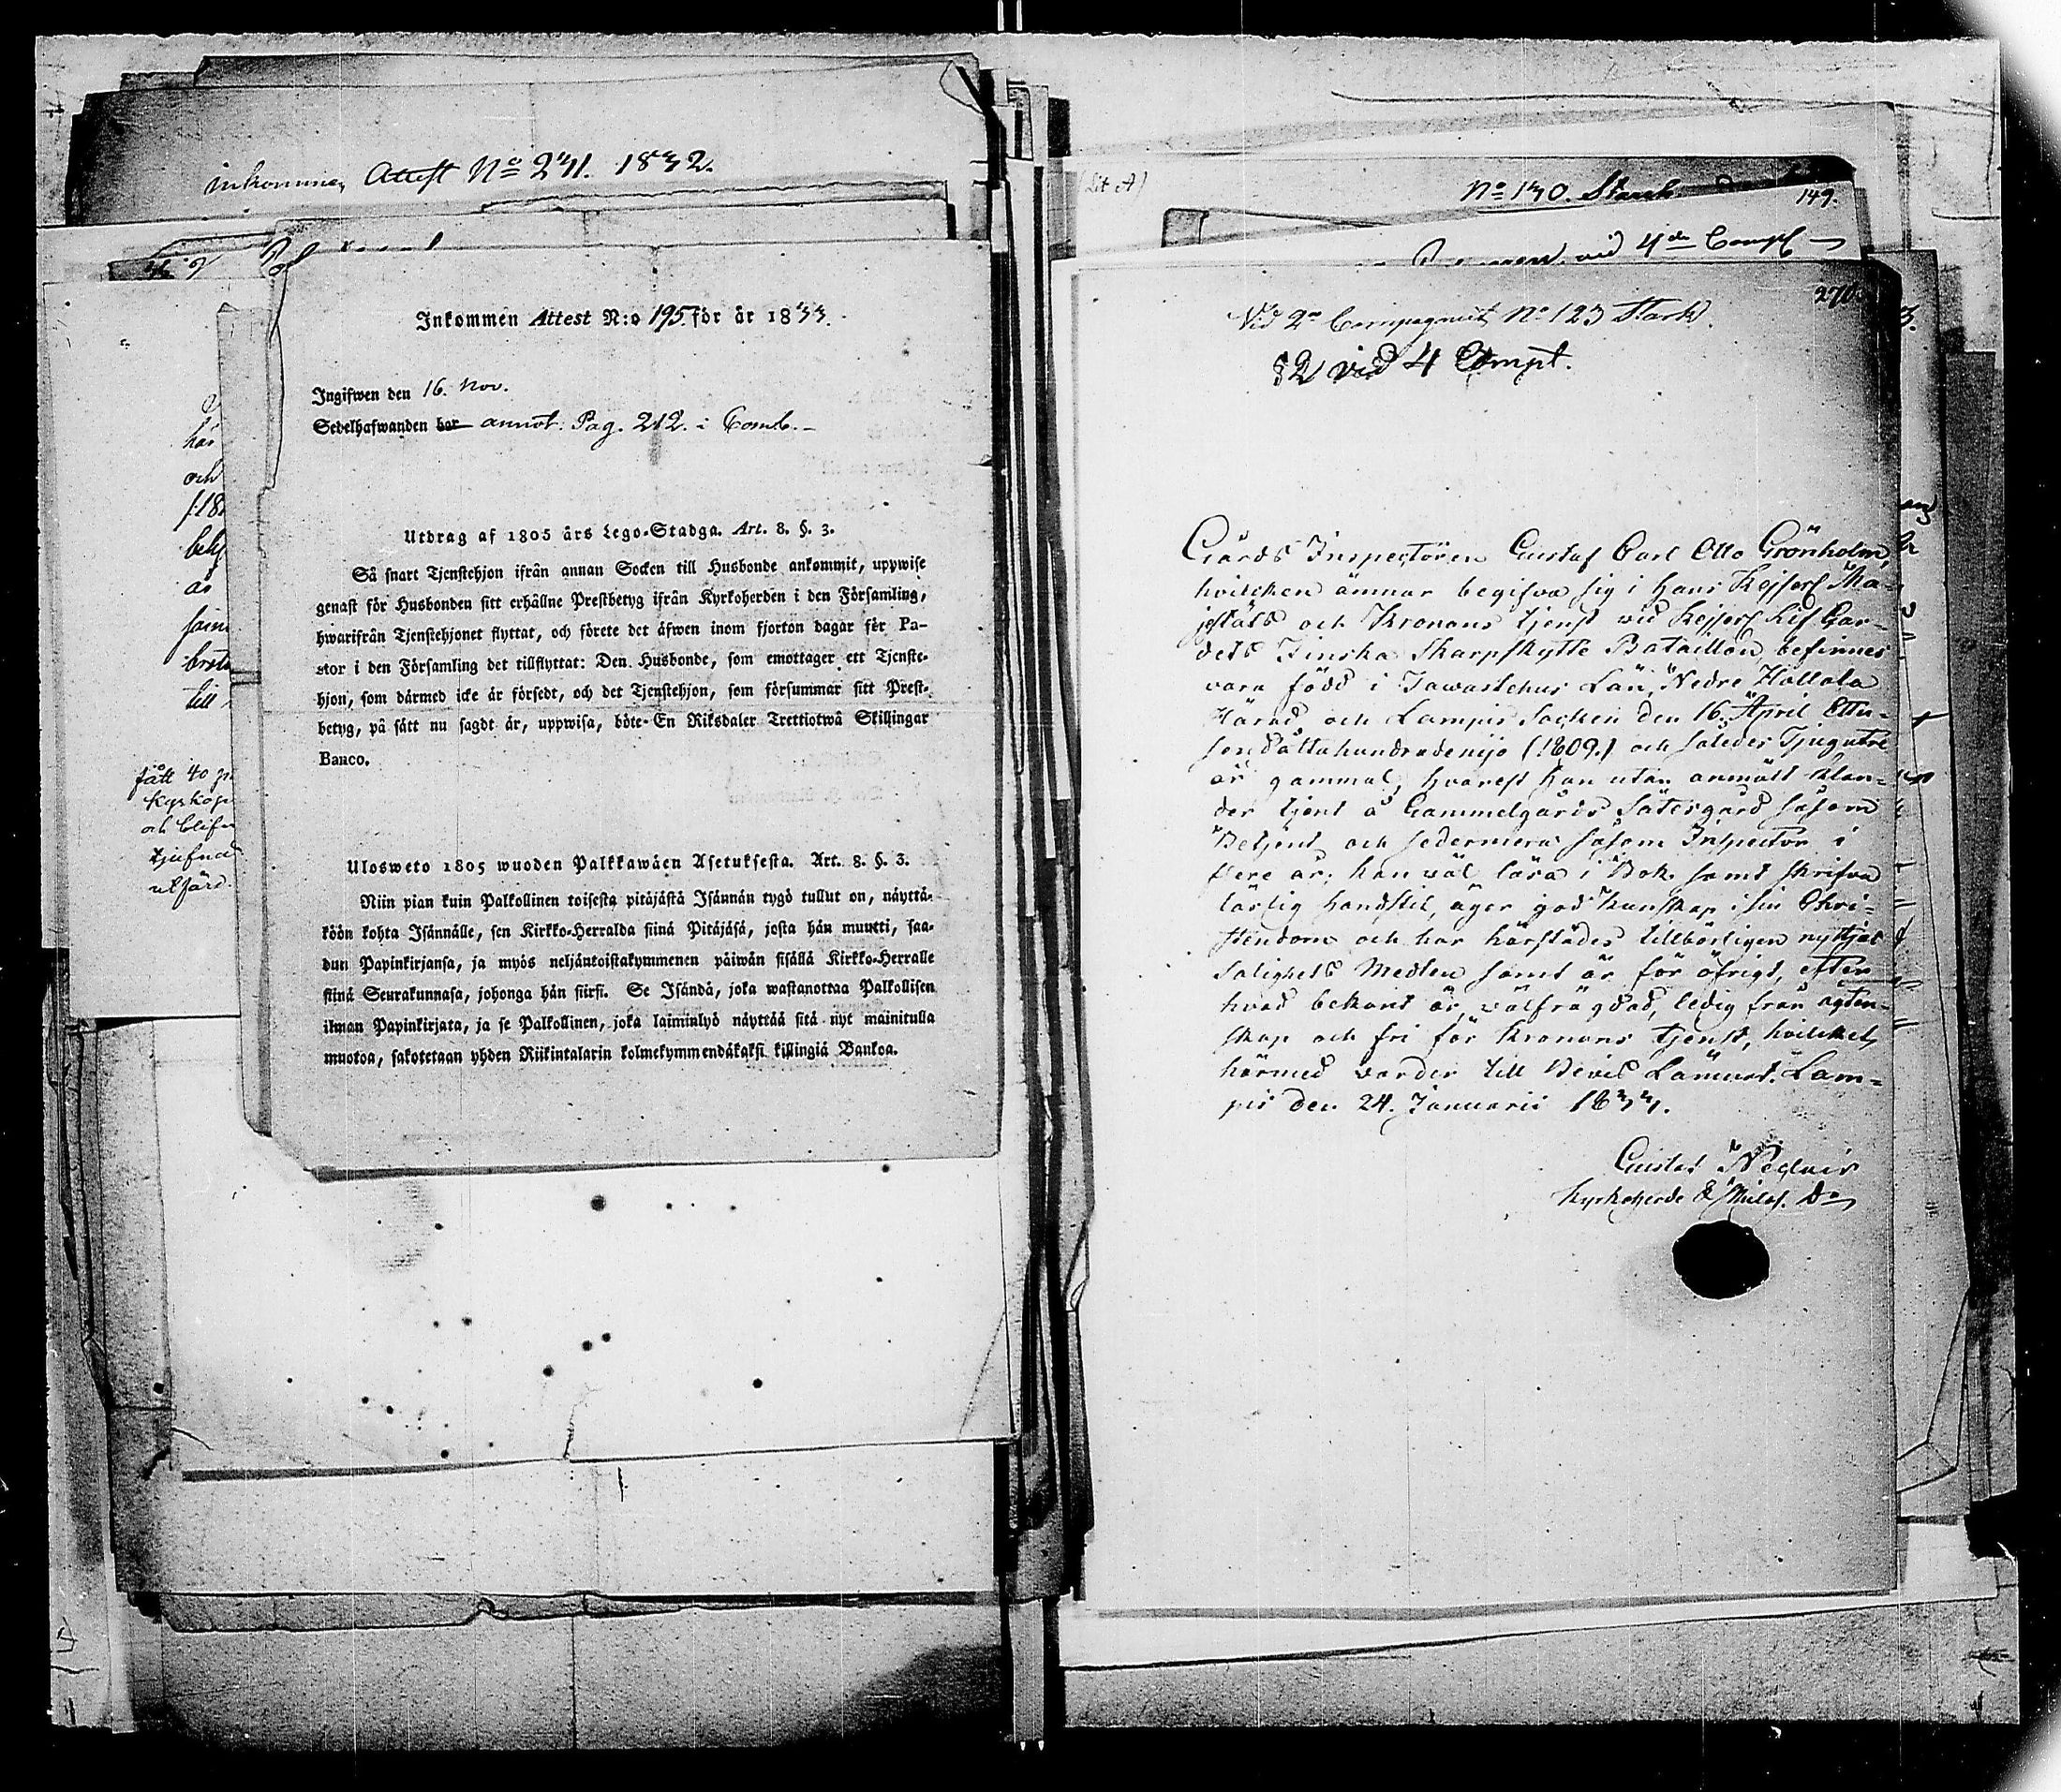 inkommen Attest No 241. 1832.
Inkommen Attest N:o 195. för år 1833.
Ingifwen den 16. Nov.
Sedelhafwanden har annot. Pag. 212. i Comb.
Utdrag af 1805 års Lego-Stadga. Art. 8. §. 3.
Så snart Tjenstehjon ifrån annan Socken till Husbonde ankommit, uppwise
genast för Husbonden sitt erhållne Prestbetyg ifrån Kyrkoherden i den Församling,
hwarifrån Tjenstehjonet flyttat, och förete det äfwen inom fjorton dagar för Pa-
stor i den Församling det tillflyttat: Den Husbonde, som emottager ett Tjenste-
hjon, som därmed icke är försedt, och det Tjenstehjon, som försummar sitt Prest-
betyg, på sätt nu sagdt är, uppwisa, böte En Riksdaler Trettiotwå Skillingar
Banco.
Ulosweto 1805 wuoden Palkkawäen Asetuksesta. Art. 8. §. 3.
Niin pian kuin Palkollinen toisesta pitäjästä Isännän tygö tullut on, näyttä-
köön kohta Isännälle, sen Kirkko-Herralda siinä Pitäjäsä, josta hän muutti, saa-
dun Papinkirjansa, ja myös neljäntoistakymmenen päiwän sisällä Kirkko-Herralle
siinä Seurakunnasa, johonga hän siirsi. Se Isändä, joka wastanottaa Palkollisen
ilman Papinkirjata, ja se Palkollinen, joka laiminlyö näyttää sitä nyt mainitulla
muotoa, sakotetaan yhden Riikintalarin kolmekymmendäkaksi killingiä Bankoa.
här
och
till
fått 40
Kyrkop
och blifv
utfärd.
(Lit A)
No 130. Stark
149.
vid 4de Comp
270
Vid 2a Compagniet No 123 Stark.
52 vid 4 Compt.
Gårds Inspectoren Gustaf Carl Otto Grönholm,
hvilcken ämnar begifva sig i Hans Kejserl Ma-
jestäts och Kronans tjenst vid Kejserl Lif Gar-
dets Finska Skarpskytte Bataillon, befinnes
vara född i Tawastehus Län, Nedre Hollola
Härad och Lampis Socken den 16 April Ettu-
send åttahundradenijo (1809.) och således Tjugutre
år gammal, hvarest han utan anmält klan-
der tjent å Gammelgårds Sätesgård såsom
Betjent och sedermera såsom Inspector i
flere år; kan väl läsa i Bok samt skrifva
lärlig handstil, äger god kunskap i sin Chri-
stendom och har härstädes tillbörligen nyttjat
Salighets Medlen samt är för öfrigt, efter
hvad bekant är, välfrägdad, ledig från ägten-
skap och fri för Kronans tjenst, hvilcket
härmed varder till Bevis Lämnat. Lam-
pis den 24. Januarii 1833.
Gustaf
Kyrkoherde &